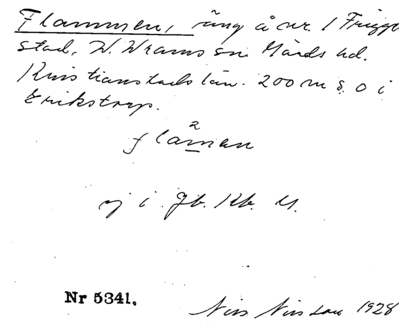 Flammen, äng å nr. 1 Frigge
stad, N. Wrams sn Gärds hd.
Kristianstads län. 200 m s. o i
Erikstorp.
2
flåmen
ej i Jb. Kb. U.
Nr 5341.
Nils Nilsson 1928